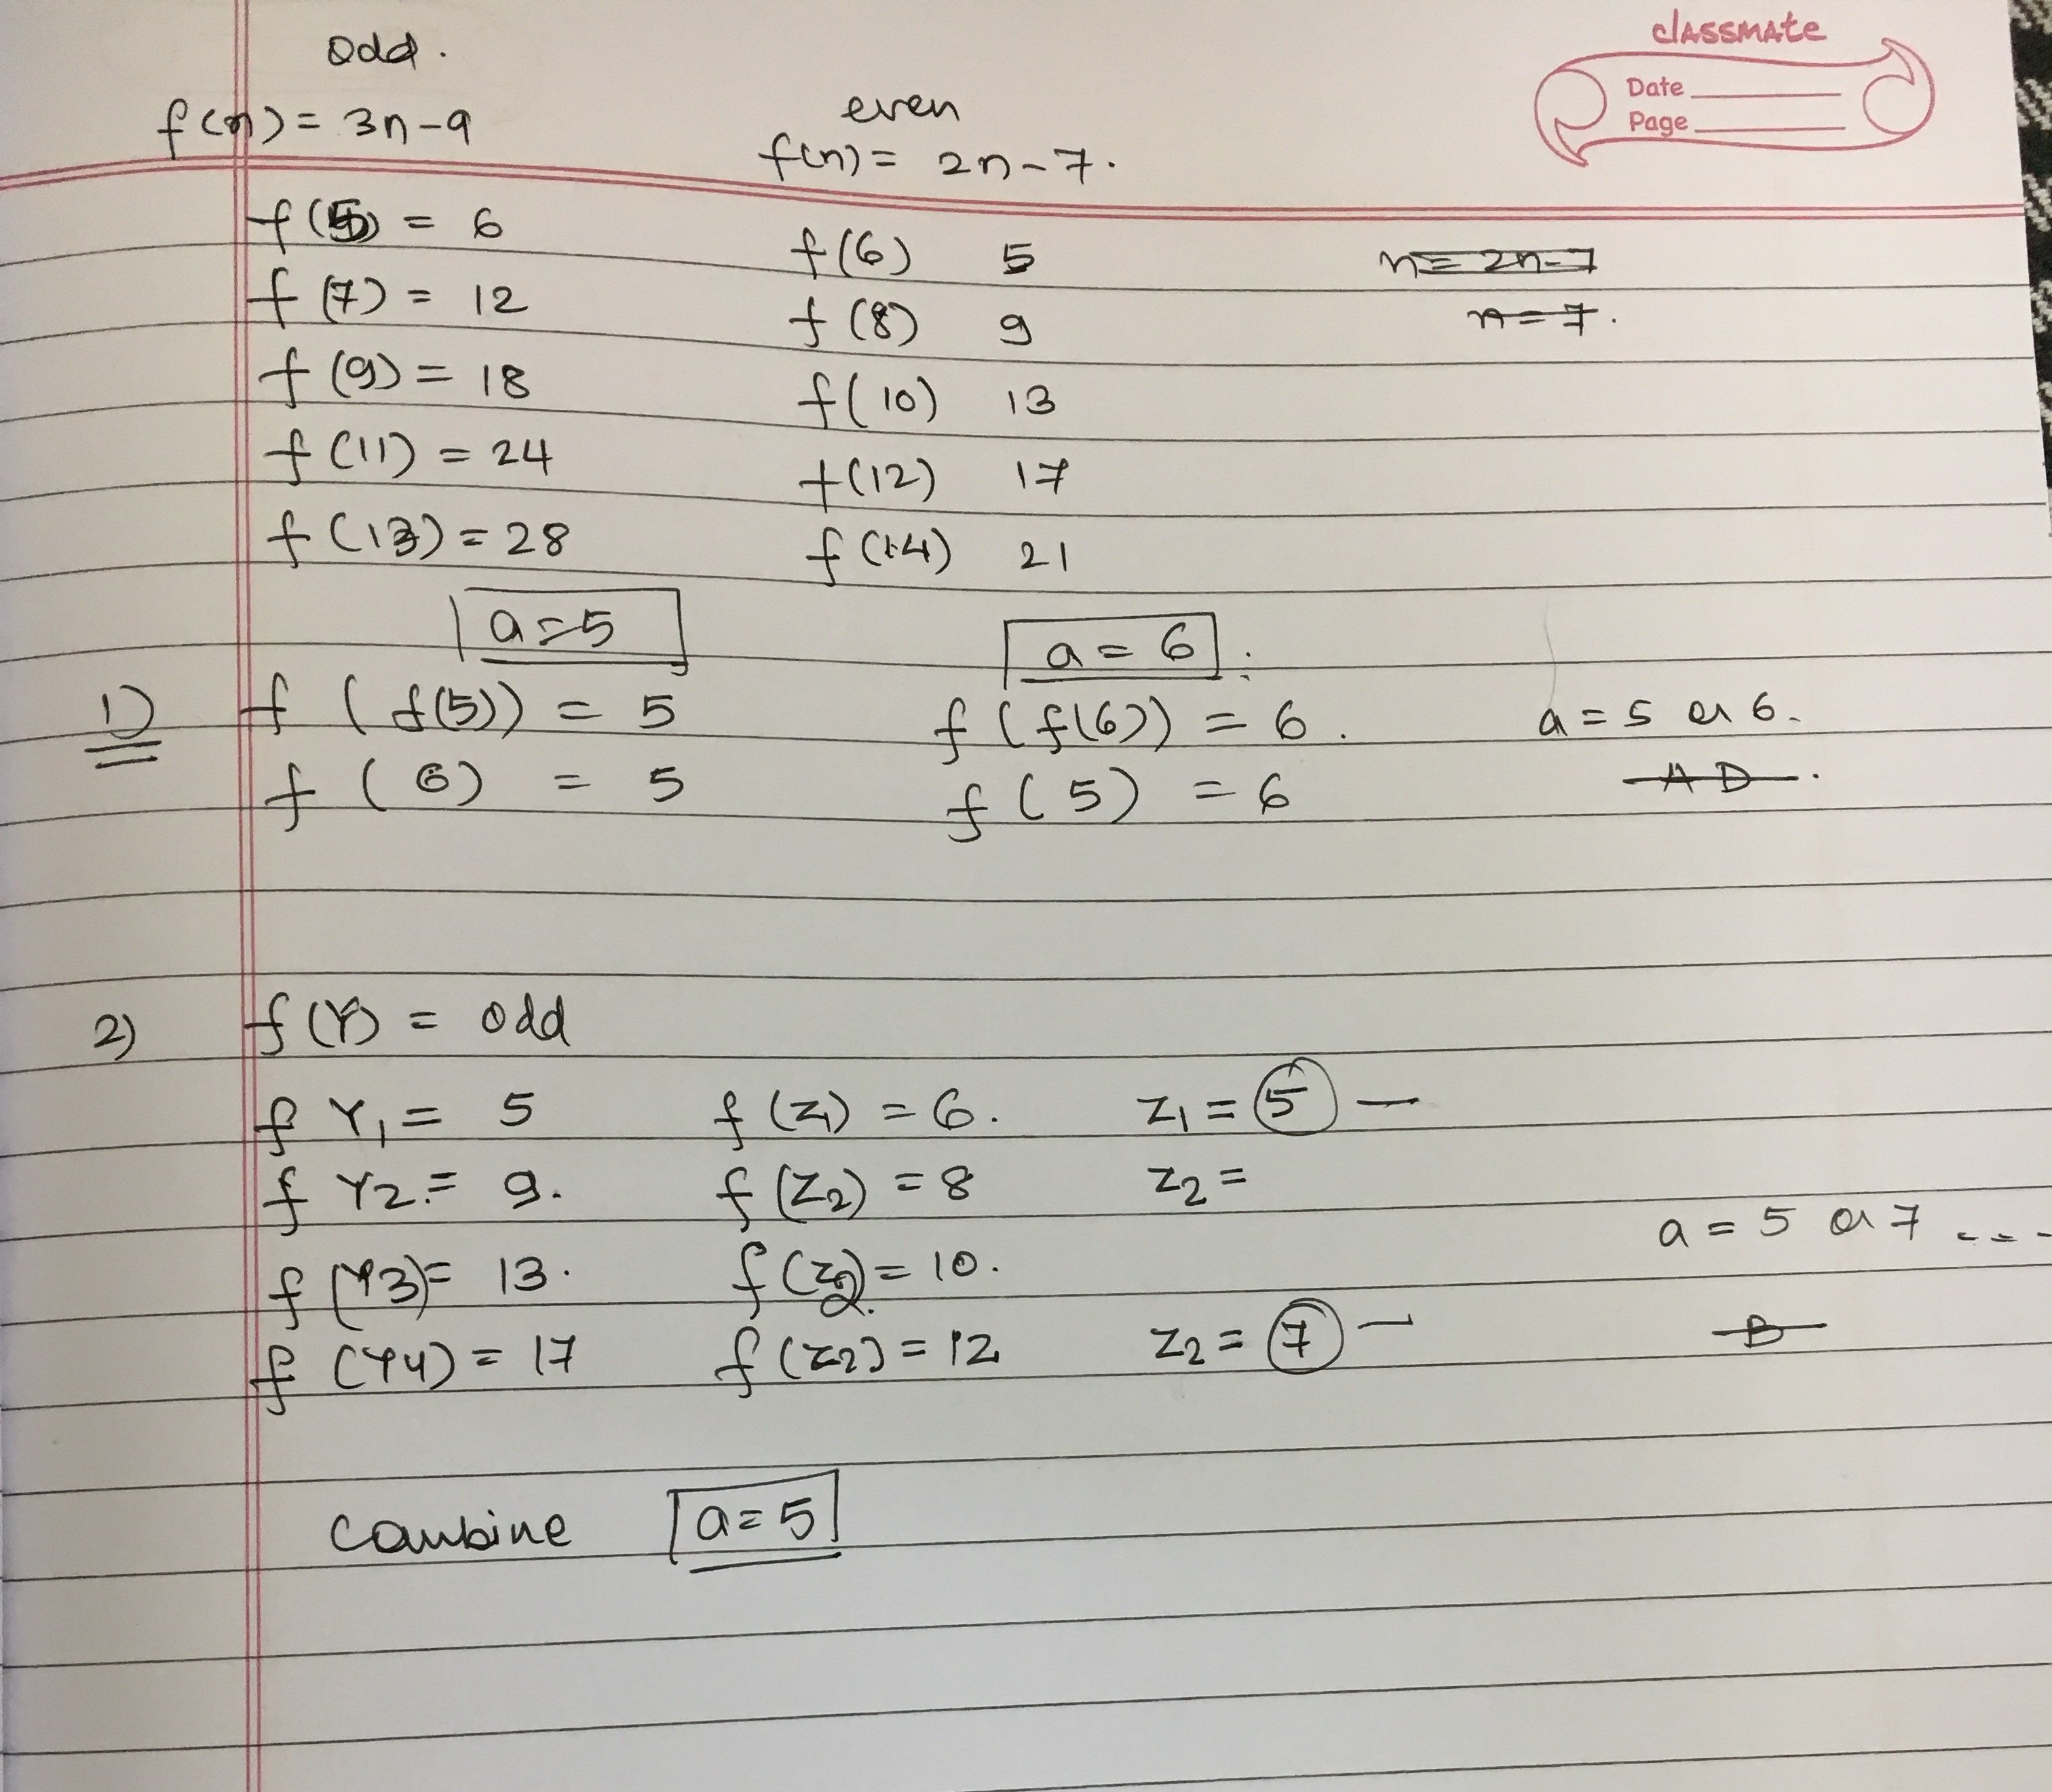 classmate
Date
Page
odd.
f(n) = 3n-9
even
f(n) = 2n-7.
f(5) = 6
f(6) 5
n = 2n-7
f(7) = 12
f(8) 9
n = 7.
f(9) = 18
f(10) 13
f(11) = 24
f(12) 17
f(13) = 28
f(14) 21
a=5
a = 6
1) f(f(5)) = 5
f(f(6)) = 6.
a = 5 or 6.
f(6) = 5
f(5) = 6
A D.
2) f(Y) = odd
f Y1 = 5 f(Z1) = 6. Z1 = 5 —
f Y2 = 9. f(Z2) = 8 Z2 =
a = 5 or 7 ---
f(Y3) = 13. f(Z2) = 10.
f(Y4) = 17 f(Z2) = 12 Z2 = 7 —
B
Combine a=5